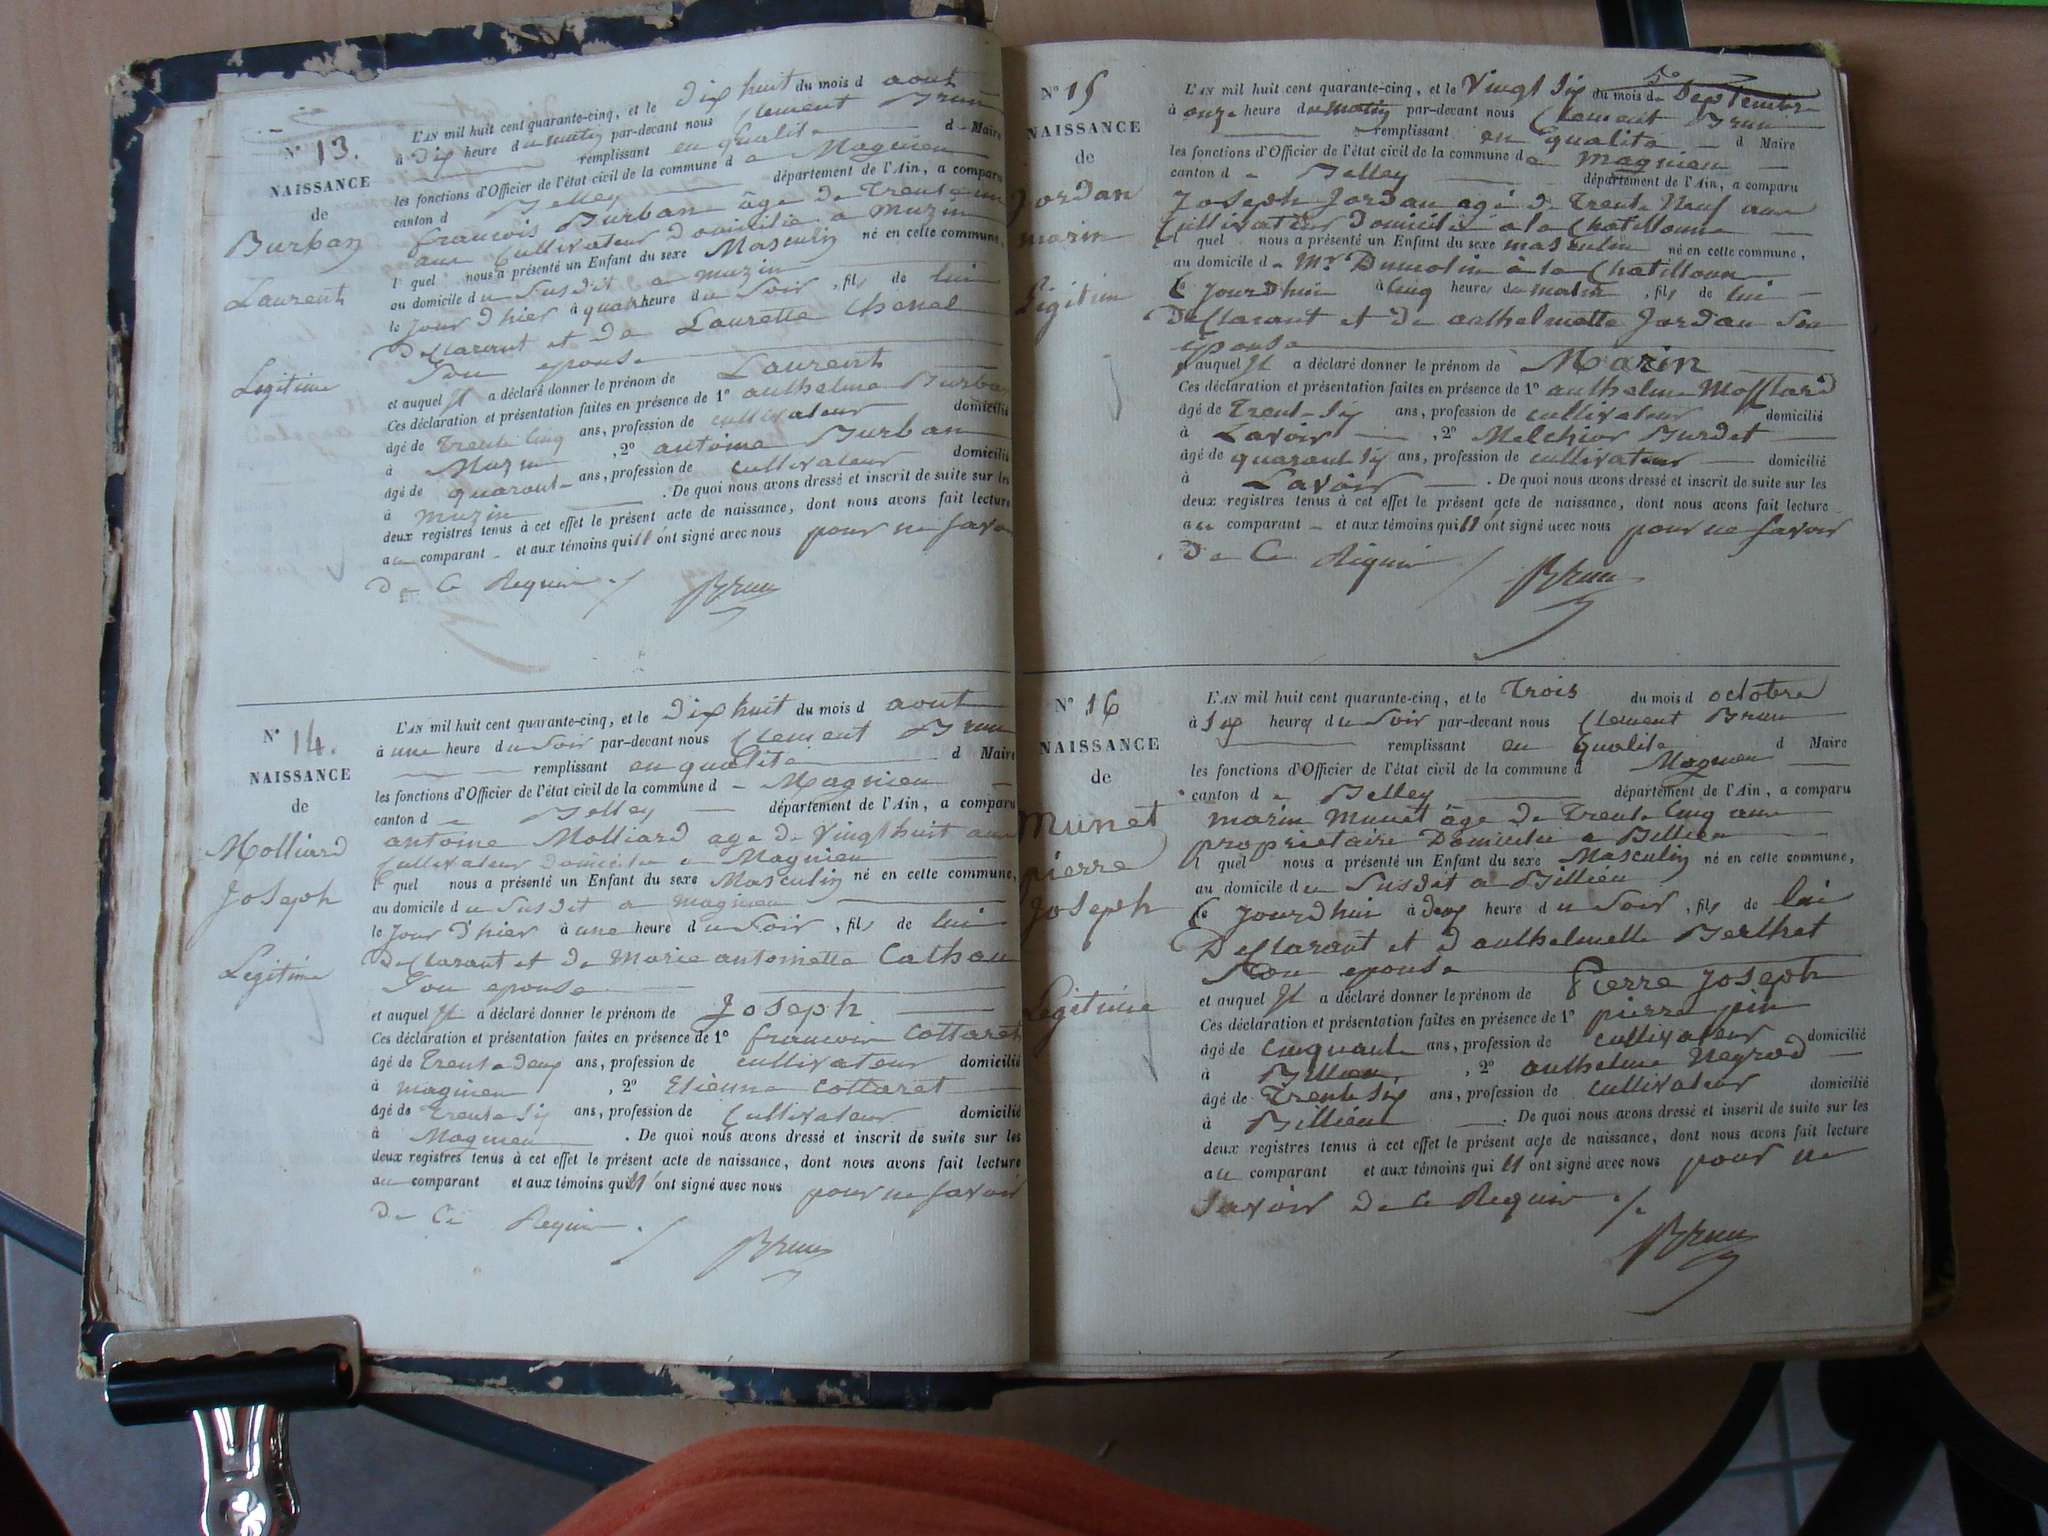 N° 13.
NAISSANCE
de
Burban
Laurent
Legitime
L'AN mil huit cent quarante-cinq, et le dix huit du mois d aout
à dix heure du matin par-devant nous Clement Brun
remplissant en qualite d Maire
les fonctions d'Officier de l'état civil de la commune de Magnieu
canton d Belley département de l'Ain, a comparu
francois Burban âge de Trente un
ans Cultivateur domicilié a Muzin
l quel nous a présenté un Enfant du sexe Masculin né en cette commune,
au domicile du Susdit a muzin
le jour d'hier à quatr heure du Soir, fils de lui
Declarant et de Laurette Chenel
Son epouse
et auquel Il a déclaré donner le prénom de Laurent
Ces déclaration et présentation faites en présence de 1° anthelme Burban
âgé de Trente Cinq ans, profession de cultivateur domicilié
à Muzin, 2° antoine Burban
âgé de quarante ans, profession de cultivateur domicilié
à muzin. De quoi nous avons dressé et inscrit de suite sur les
deux registres tenus à cet effet le présent acte de naissance, dont nous avons fait lecture
au comparant et aux témoins qui n'ont signé avec nous pour ne savoir
De Ce Requis ./
Brun
N° 14.
NAISSANCE
de
Molliard
Joseph
Legitime
L'AN mil huit cent quarante-cinq, et le dix huit du mois d aout
à une heure du Soir par-devant nous Clement Brun
remplissant en qualité d Maire
les fonctions d'Officier de l'état civil de la commune d Magnieu
canton de Belley département de l'Ain, a comparu
antoine Molliard age de Vingt huit ans
Cultivateur domicilie a Magnieu
l quel nous a présenté un Enfant du sexe Masculin né en cette commune,
au domicile du Susdit a magnieu
le Jour d'hier à une heure du Soir, fils de lui
Declarant et de Marie antoinette Cathou
Son epouse
et auquel Il a déclaré donner le prénom de Joseph
Ces déclaration et présentation faites en présence de 1° francois Cottaret
âgé de Trente deux ans, profession de cultivateur domicilié
à magnieu, 2° Etienne Cottaret
âgé de Trente Six ans, profession de Cultivateur domicilié
à Magnieu. De quoi nous avons dressé et inscrit de suite sur les
deux registres tenus à cet effet le présent acte de naissance, dont nous avons fait lecture
au comparant et aux témoins qui n'ont signé avec nous pour ne savoir
De Ce Requis ./
Brun
N° 15
NAISSANCE
de
Jordan
marin
Legitim
L'AN mil huit cent quarante-cinq, et le Vingt Six du mois de Septembre
à onze heure du matin par-devant nous Clement Brun
remplissant en qualite d Maire
les fonctions d'Officier de l'état civil de la commune de magnieu
canton de Belley département de l'Ain, a comparu
Joseph Jordan agé de Trente Neuf ans
Cultivateur Domicilié a la Chatillonne
l quel nous a présenté un Enfant du sexe masculin né en cette commune,
au domicile de Mr Dumolin à la Chatillonne
Ce Jourdhui à cinq heures du matin, fils de lui
Declarant et de anthelmette Jordan Son
epouse
auquel Il a déclaré donner le prénom de Marin
Ces déclaration et présentation faites en présence de 1° anthelme Mollard
âgé de Trent Six ans, profession de cultivateur domicilié
à Lavoir, 2° Melchior Burdet
âgé de quarant Six ans, profession de cultivateur domicilié
à Lavoir. De quoi nous avons dressé et inscrit de suite sur les
deux registres tenus à cet effet le présent acte de naissance, dont nous avons fait lecture
au comparant et aux témoins qui n'ont signé avec nous pour ne savoir
De Ce Requis /
Brun
N° 16
NAISSANCE
de
Munet
pierre
Joseph
Legitime
L'AN mil huit cent quarante-cinq, et le Trois du mois d octobre
à Six heures du Soir par-devant nous Clement Brun
remplissant en Qualité d Maire
les fonctions d'Officier de l'état civil de la commune d Magnieu
canton de Belley département de l'Ain, a comparu
marin Munet âge de Trente Cinq ans
proprietaire Domicilié a Billieu
l quel nous a présenté un Enfant du sexe Masculin né en cette commune,
au domicile du Susdit a Billieu
Ce jourdhui à deux heure du Soir, fils de lui
Declarant et d anthelmette Berthet
Son epouse
et auquel Il a déclaré donner le prénom de Pierre Joseph
Ces déclaration et présentation faites en présence de 1° pierre pin
âgé de Cinquante ans, profession de cultivateur domicilié
à Billieu, 2° anthelme Neyrod
âgé de Trente Six ans, profession de cultivateur domicilié
à Billieu. De quoi nous avons dressé et inscrit de suite sur les
deux registres tenus à cet effet le présent acte de naissance, dont nous avons fait lecture
au comparant et aux témoins qui n'ont signé avec nous pour ne
Savoir de ce Requis ./.
Brun